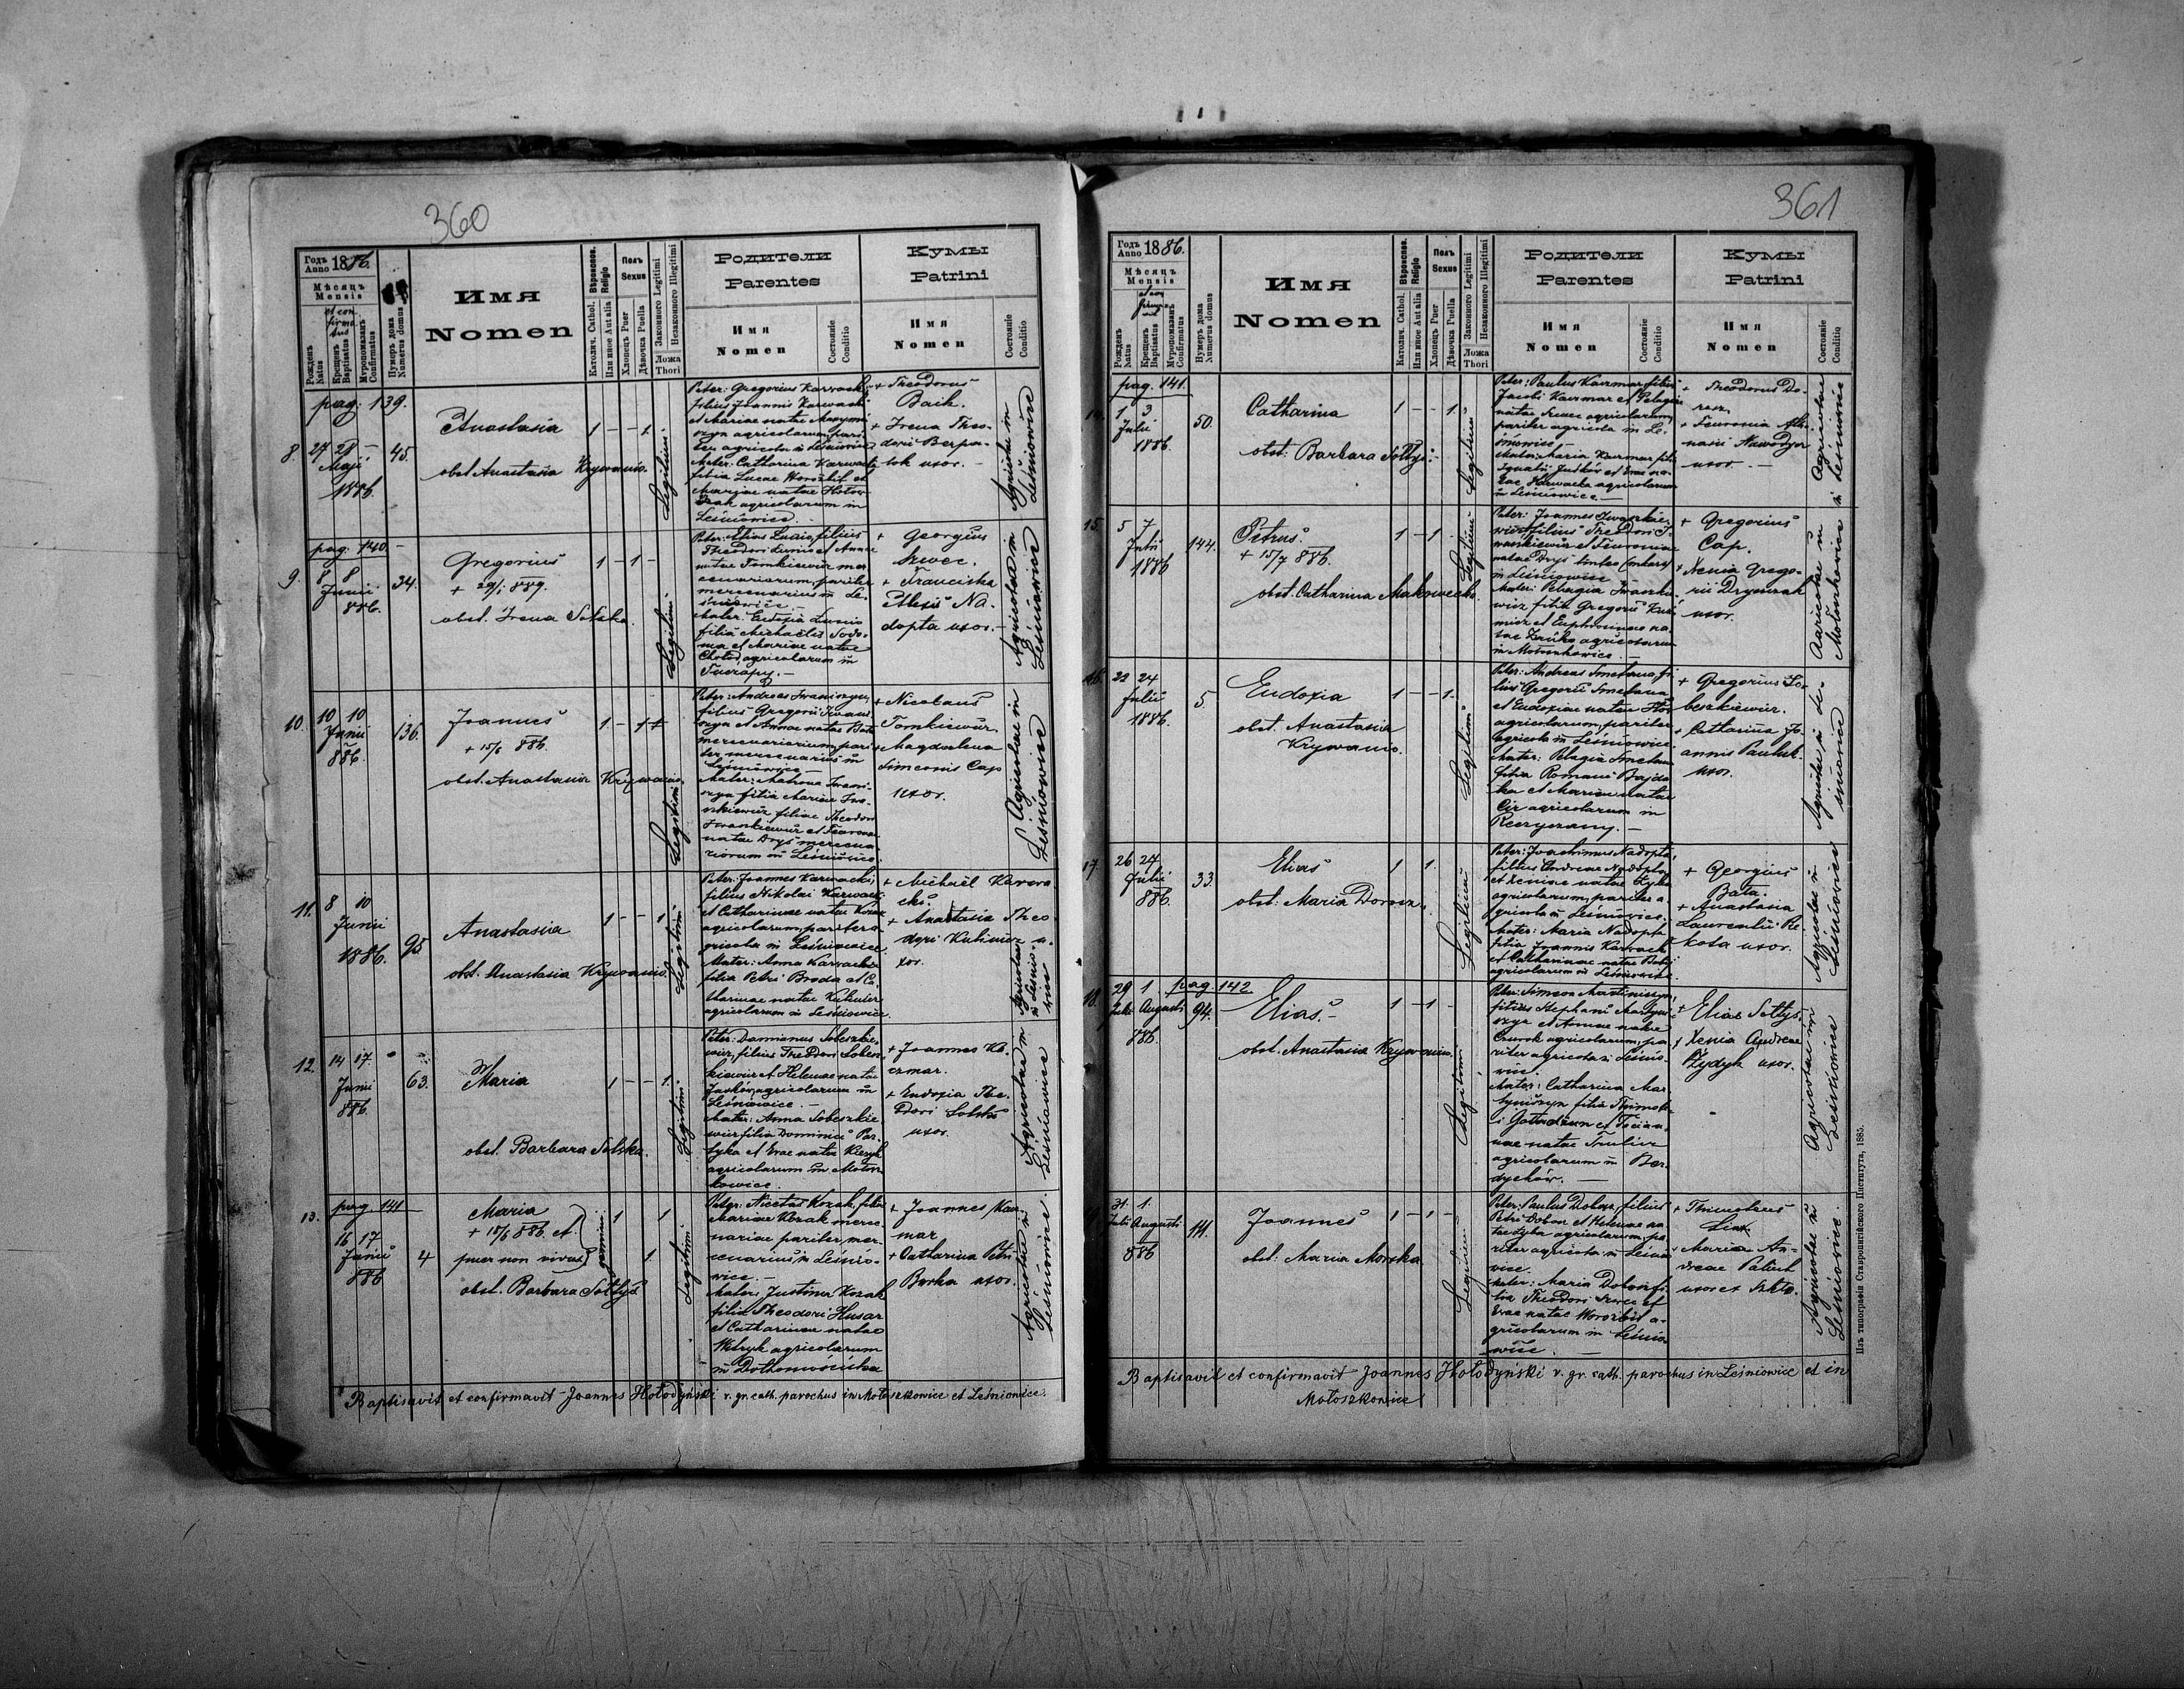 360
Годъ 1886.
Anno
Мѣсяцъ
Mensis
et con
firma
tus
Рожденъ
Natus
Крещенъ
Baptisatus
Мѵропомазанъ
Confirmatus
Нумеръ дома
Numerus domus
Имя
Nomen
Вѣроиспов.
Religio
Католич. Cathol.
Или иное Aut alia
Полъ
Sexus
Хлопецъ Puer
Дѣвочка Puella
Законного Legitimi
Незаконного Illegitimi
Ложа
Thori
Родители
Parentes
Имя
Nomen
Состояніе
Conditio
Кумы
Patrini
Имя
Nomen
Состояніе
Conditio
pag: 139.
8. 27 29
Maji
1886.
45.
Anastasia
obst. Anastasia Krywanio.
1 - - 1.
Legitimi
Pater: Gregorius Karwacki
filius Joannis Karwacki
et Mariae natae
agricolarum, pari
ter agricola in Leśniowice
Mater: Catharina Karwacka
filia Lucae Worozbit et
Mariae natae Hotow
czak agricolarum in
Leśniowice.
+ Theodorus
Baik.
+ Irena Theo-
dori Berpa-
tok uxor. -
Agricolae in
Leśniowice
pag. 140. -
9. 8 8
Junii
886.
34.
Gregorius
+ 29/1 889.
obst. Irena Solska.
1 - 1 -
Legitimi
Pater: Elias Lunio, filius
Theodori Lunio et Annae
natae Tomkiewicz mer
cenariorum, pariter
mercenarius in Le-
śniowice. -
Mater: Eudoxia Lunio
filia Michaelis Sodo-
ma et Mariae natae
Chotoj, agricolarum in
Tuczapy. -
+ Georgius
Szwec.
+ Francisca
Alexii Na-
dopta uxor. -
Agricolae in
Leśniowice
10. 10 10
Junii
886.
136.
Joannes
+ 15/6 886.
obst. Anastasia Krywanio.
Legitimi
Pater: Andreas Iwaniszyn,
filius Gregorii Iwani
szyn et Annae natae
mercenariorum, pari
ter mercenarius in
Leśniowice -
Mater: Mathrona Iwani-
szyn filia Mariae Iwa-
szkiewicz filiae Theodori
Iwaszkiewicz et Fevroniae
natae Dryś mercena-
riorum in Leśniowice.
+ Nicolaus
Tomkiewicz
+ Magdalena
Simeonis Cap
uxor.
Agricolae in
Leśniowice
11. 8 10
Junii
1886.
95
Anastasia
obst. Anastasia Krywanio.
1 - - 1.
Legitimi
Pater: Joannes Karwacki,
filius Nikolai Karwacki
et Catharinae natae Kozak
agricolarum, pariter a-
gricola in Leśniowice
Mater: Anna Karwacka
filia Petri Broda et Ca-
tharinae natae Kuhuier
agricolarum in Leśniowice.
+ Michaël Karwa-
cki.
+ Anastasia Theo-
dori Kulinicz u-
xor.
Agricolae
in Leśnio-
wice
12. 14 17.
Junii
886.
63.
Maria
obst. Barbara Solska.
1 - - 1.
Legitimi
Pater: Damianus Sobeszkie-
wicz, filius Theodori Sobesz-
kiewicz et Helenae natae
Juśków, agricolarum in
Leśniowice. -
Mater: Anna Sobeszkie-
wicz filia Dominici Par-
tyka et Evae natae Kiczyk
agricolarum in Motosz-
kowice.
+ Joannes Ka-
czmar.
+ Eudoxia The-
dori Solski
uxor.
Agricolae in
Leśniowice
pag. 141
13. 16 17
Junii
886
4
Maria
+ 18/6 886. et
puer non vivus
gemini
obst. Barbara Sołtys
1 1
1.
Legitimi
Pater: Nicetas Kozak, filius
Mariae Kozak merce-
nariae pariter, mer-
cenarius in Leśnio-
wice. -
Mater: Justina Kozak
filia Theodori Husar
et Catharinae natae
Wityk agricolarum
in Dothomościska
+ Joannes Kacz
mar
+ Catharina Petri
Burka uxor.
Agricolae in
Leśniowice.
Baptisavit et confirmavit Joannes Hołodyński r. gr. cath. parochus in Motoszkowice et Leśniowice.
361
Годъ 1886.
Anno
Мѣсяцъ
Mensis
et con
firma
Рожденъ
Natus
Крещенъ
Baptisatus
Мѵропомазанъ
Confirmatus
Нумеръ дома
Numerus domus
Имя
Nomen
Вѣроиспов.
Religio
Католич. Cathol.
Или иное Aut alia
Полъ
Sexus
Хлопецъ Puer
Дѣвочка Puella
Законного Legitimi
Незаконного Illegitimi
Ложа
Thori
Родители
Parentes
Имя
Nomen
Состояніе
Conditio
Кумы
Patrini
Имя
Nomen
Состояніе
Conditio
pag. 141.
14. 1 3
Julii
1886.
50.
Catharina
obst: Barbara Sołtys. -
1 - - 1.
Legitimi
Pater: Paulus Kaczmar filius
Jacobi Kaczmar et Pelagiae
natae Szwec agricolarum,
pariter agricola in Le-
śniowice. -
Mater: Maria Kaczmar filia
Ignatii Juśków et Evae na-
tae Karwacka agricolarum
in Leśniowice. -
+ Theodorus Do-
rosz.
+ Fevronia Atha-
nasii Nawodyor
uxor. -
Agricolae
in Leśniowice
15. 5 7
Julii
1886
144.
Petrus.
+ 15/7 886.
obst. Catharina Makowiecka.
1 - 1 -
Legitimi
Pater: Joannes Iwaszkie-
wicz, filius Theodori I-
waszkiewicz et Fevroniae
natae Dryś
in Leśniowice
Mater: Pelagia Iwaszkie-
wicz filia Gregorii Kuź-
micz et Euphrosinae na-
tae Zańko agricolarum
in Motoszkowice. -
+ Gregorius
Cap.
+ Xenia Grego-
rii Drymrak
uxor.
Agricolae in
Motoszkowice
16. 22 24
Julii
1886.
5.
Eudoxia
obst. Anastasia
Krywanio.
1 - - 1.
Legitimi
Pater: Andreas Smetana fi-
lius Gregorii Smetana
et Eudoxiae natae
agricolarum, pariter
agricola in Leśniowice.
Mater: Pelagia Smetana
filia Romani Bajda-
ka et Mariae natae
Cir agricolarum in
Reczyczany. -
+ Gregorius So-
beszkiewicz.
+ Catharina Jo-
annis Pauluk
uxor.
Agricolae in Le-
śniowice
17. 26 24
Julii
886.
33.
Elias
obst: Maria Dorosz.
1 1.
Legitimi
Pater: Joachimus Nadopta,
filius Andreae Nadopta
et Xeniae natae Łyko
agricolarum, pariter a-
gricola in Leśniowice.
Mater: Maria Nadopta
filia Joannis Karwacki
et Catharinae natae
agricolarum in Leśniowice.
+ Georgius
Bata.
+ Anastasia
Laurentii Re-
kota uxor.
Agricolae in
Leśniowice
pag. 142
18. 29 1
Julii Augusti
886.
94.
Elias. -
obst. Anastasia Krywanio.
1 - 1 -
Legitimi
Pater: Simeon Martiniszyn,
filius Stephani Martyni-
szyn et Annae natae
Czurok agricolarum, pa-
riter agricola in Leśnio-
wice.
Mater: Catharina Mar-
tyniszyn filia Thimothe-
i Gaładzan et Tacian-
nae natae Trulicz
agricolarum in Ber-
dychów. -
+ Elias Sołtys.
+ Xenia Andreae
Żydyk uxor.
Agricolae in
Leśniowice
31. 1.
Julii Augusti
886
111.
Joannes
obst: Maria Morska
1 - 1 -
Legitimi
Pater: Paulus Dobosz, filius
Petri Dobosz et Helenae na-
tae Dyba agricolarum, pa-
riter agricola in Leśnio-
wice.
Mater: Maria Dobosz fi-
lia Theodori Szwec et
Evae natae Worozbit a-
gricolarum in Leśnio-
wice. -
+ Thimotheus
Maria An-
dreae Paliuh
uxor et
Agricolae in
Leśniowice.
Baptisavit et confirmavit Joannes Hołodyński r. gr. cath. parochus in Leśniowice et in
Motoszkowice
Изъ типографіи Ставропигійского Института, 1885.